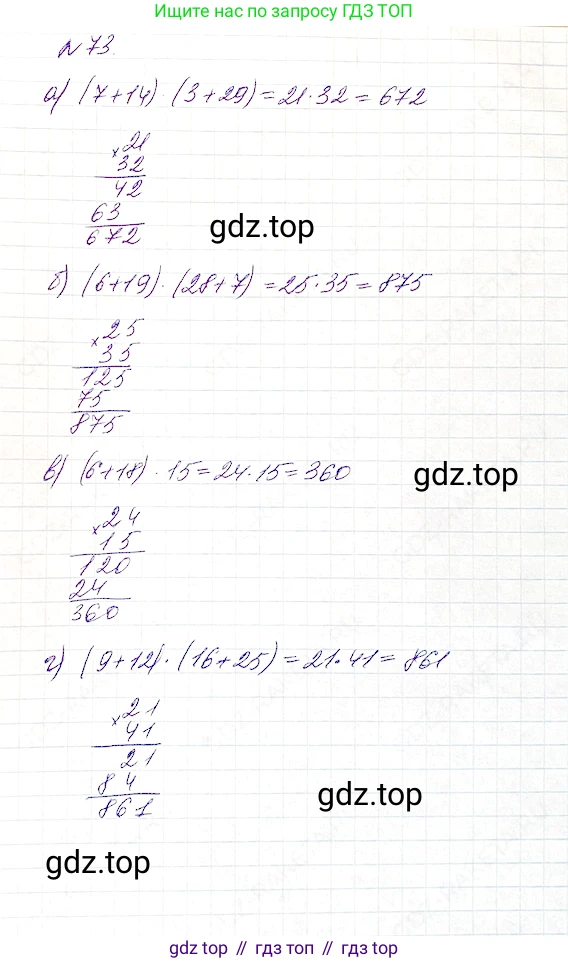 Ищите нас по запросу ГДЗ ТОП
№ 73.
а) (7+14) · (3+29) = 21·32 = 672
× 21
32
42
63
672
gdz.top
б) (6+19) · (28+7) = 25·35 = 875
× 25
35
125
75
875
в) (6+18) · 15 = 24·15 = 360
gdz.top
× 24
15
120
24
360
г) (9+12) · (16+25) = 21·41 = 861
× 21
41
21
84
861
gdz.top
gdz.top
gdz top // гдз топ // gdz top